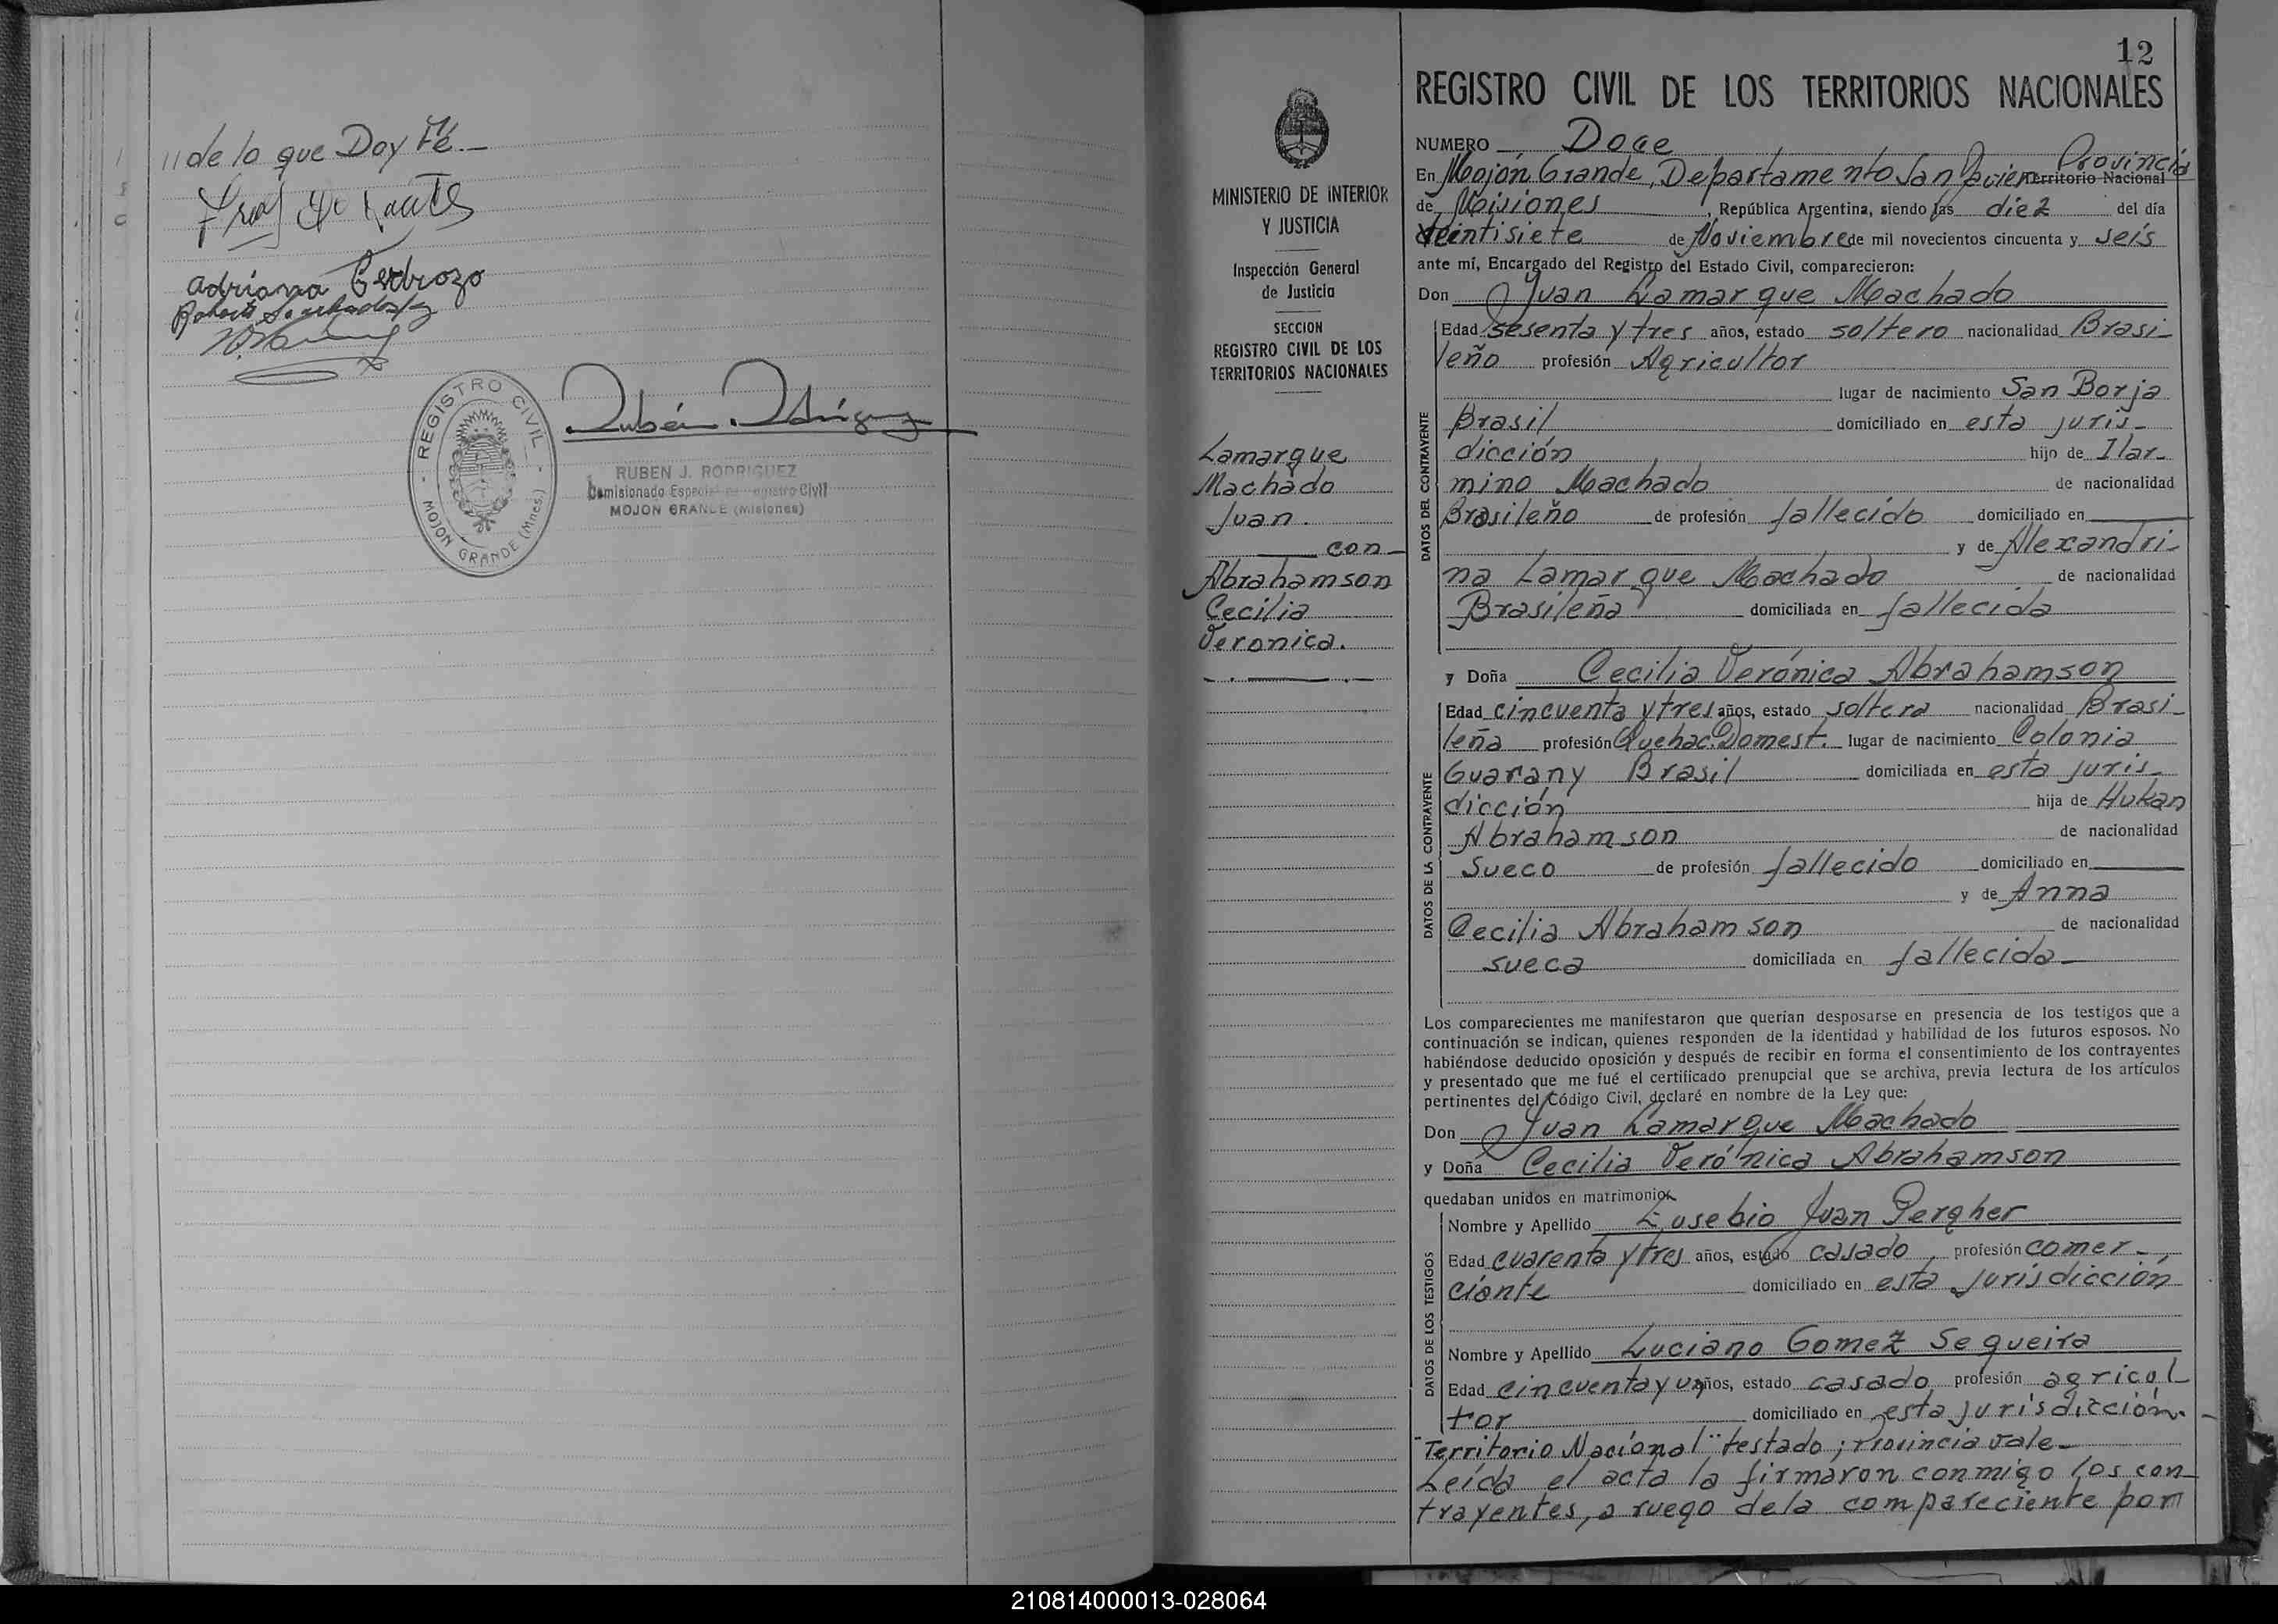 //de lo que Doy Fé.-
Adriana
REGISTRO CIVIL
MOJON GRANDE (Mnes.)
Rubén
RUBEN J. RODRIGUEZ
Comisionado Especial Registro Civil
MOJON GRANDE (Misiones)
MINISTERIO DE INTERIOR
Y JUSTICIA
Inspección General
de Justicia
SECCION
REGISTRO CIVIL DE LOS
TERRITORIOS NACIONALES
Lamarque
Machado
Juan.
con
Abrahamson
Cecilia
Veronica.
12
REGISTRO CIVIL DE LOS TERRITORIOS NACIONALES
NUMERO Doce
Provincia
En Mojón Grande, Departamento San Javier Territorio Nacional
de Misiones, República Argentina, siendo las diez del día
veintisiete de Noviembre de mil novecientos cincuenta y seis
ante mí, Encargado del Registro del Estado Civil, comparecieron:
Don Juan Lamarque Machado
DATOS DEL CONTRAYENTE
Edad sesenta y tres años, estado soltero nacionalidad Brasi-
leño profesión Agricultor
lugar de nacimiento San Borja
Brasil domiciliado en esta juris-
dicción hijo de Ilar-
mino Machado de nacionalidad
Brasileño de profesión fallecido domiciliado en
y de Alexandri-
na Lamarque Machado de nacionalidad
Brasileña domiciliada en fallecida
y Doña Cecilia Verónica Abrahamson
DATOS DE LA CONTRAYENTE
Edad cincuenta y tres años, estado soltera nacionalidad Brasi-
leña profesión Quehac. Domest. lugar de nacimiento Colonia
Guarany Brasil domiciliada en esta juris-
dicción hija de Hukan
Abrahamson de nacionalidad
Sueco de profesión fallecido domiciliado en
y de Anna
Cecilia Abrahamson de nacionalidad
sueca domiciliada en fallecida
Los comparecientes me manifestaron que querían desposarse en presencia de los testigos que a
continuación se indican, quienes responden de la identidad y habilidad de los futuros esposos. No
habiéndose deducido oposición y después de recibir en forma el consentimiento de los contrayentes
y presentado que me fué el certificado prenupcial que se archiva, previa lectura de los artículos
pertinentes del Código Civil, declaré en nombre de la Ley que:
Don Juan Lamarque Machado
y Doña Cecilia Verónica Abrahamson
quedaban unidos en matrimonio.
DATOS DE LOS TESTIGOS
Nombre y Apellido Eusebio Juan Pergher
Edad cuarenta y tres años, estado casado, profesión comer-
ciante domiciliado en esta jurisdicción
Nombre y Apellido Luciano Gomez Sequeira
Edad cincuenta y un años, estado casado profesión agricul
tor domiciliado en esta jurisdicción.-
"Territorio Nacional" testado; Provincia vale-
Leída el acta la firmaron conmigo los con-
trayentes, a ruego de la compareciente por
210814000013-028064